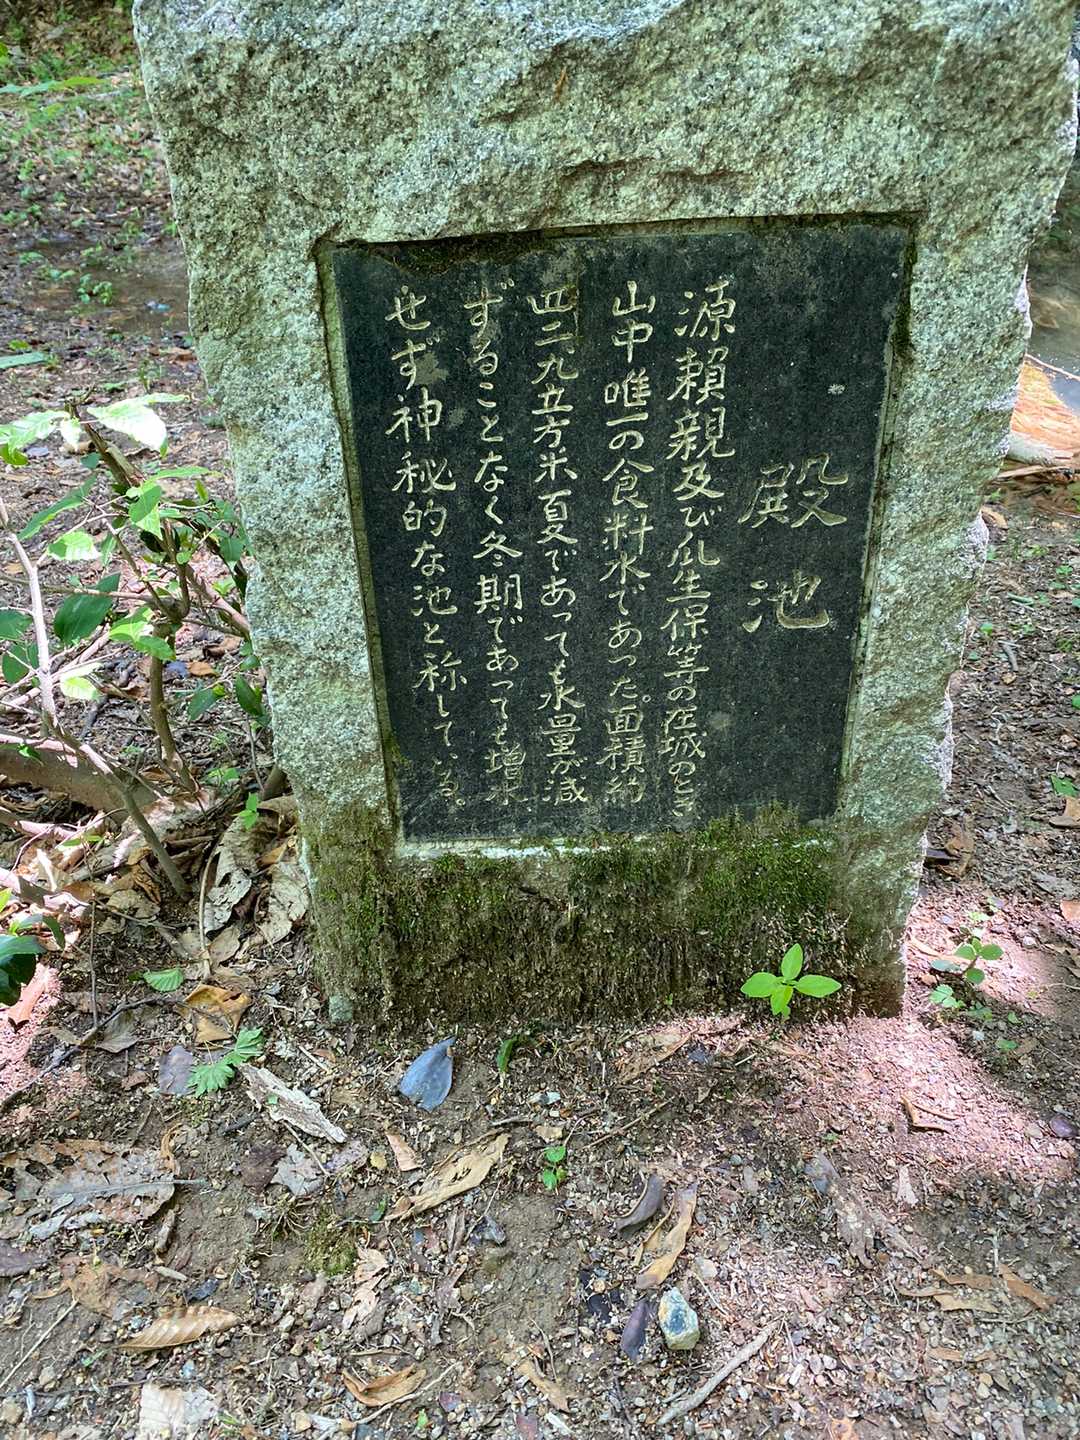 殿池
源頼親及び瓜生保等の在城のとき
山中唯一の食料水であった。面積約
四二九立方米夏であっても水量が減
ずることなく冬期であっても増水
せず神秘的な池と称している。